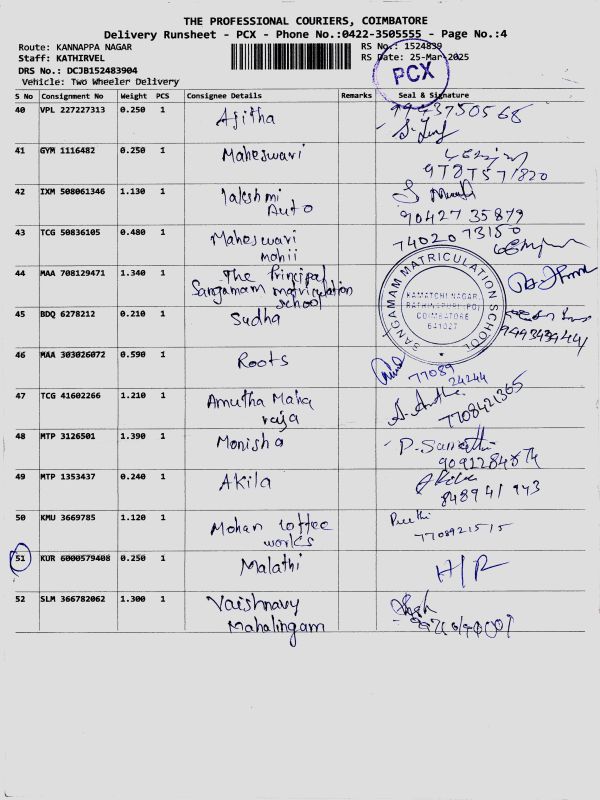 THE PROFESSIONAL COURIERS, COIMBATORE
Delivery Runsheet - PCX - Phone No.:0422-3505555 - Page No.:4
Route: KANNAPPA NAGAR RS No.: 1524839
Staff: KATHIRVEL RS Date: 25-Mar-2025
DRS No.: DCJB152483904
Vehicle: Two Wheeler Delivery
PCX
S No Consignment No Weight PCS Consignee Details Remarks Seal & Signature
40 VPL 227227313 0.250 1 Ajitha 9943750568
41 GYM 1116482 0.250 1 Maheswari
42 IXM 508061346 1.130 1 lakshmi
Auto 90427 35879
43 TCG 50836105 0.480 1 Maheswari 74020 73150
mohii
44 MAA 708129471 1.340 1 The Principal
Sangamam matriculation
school
SANGAMAM MATRICULATION SCHOOL
KAMATCHI NAGAR,
RATHINAPURI (PO)
COIMBATORE
641027
45 BDQ 6278212 0.210 1 Sudha
46 MAA 303026072 0.590 1 Roots 77089
24244
47 TCG 41602266 1.210 1 Amutha Maha
raja 7708421365
48 MTP 3126501 1.390 1 Monisha
49 MTP 1353437 0.240 1 Akila
50 KMU 3669785 1.120 1 Mohan coffee Preethi
works 7708921515
51 KUR 6000579408 0.250 1 Malathi H/R
52 SLM 366782062 1.300 1 Vaishnavy
Mahalingam